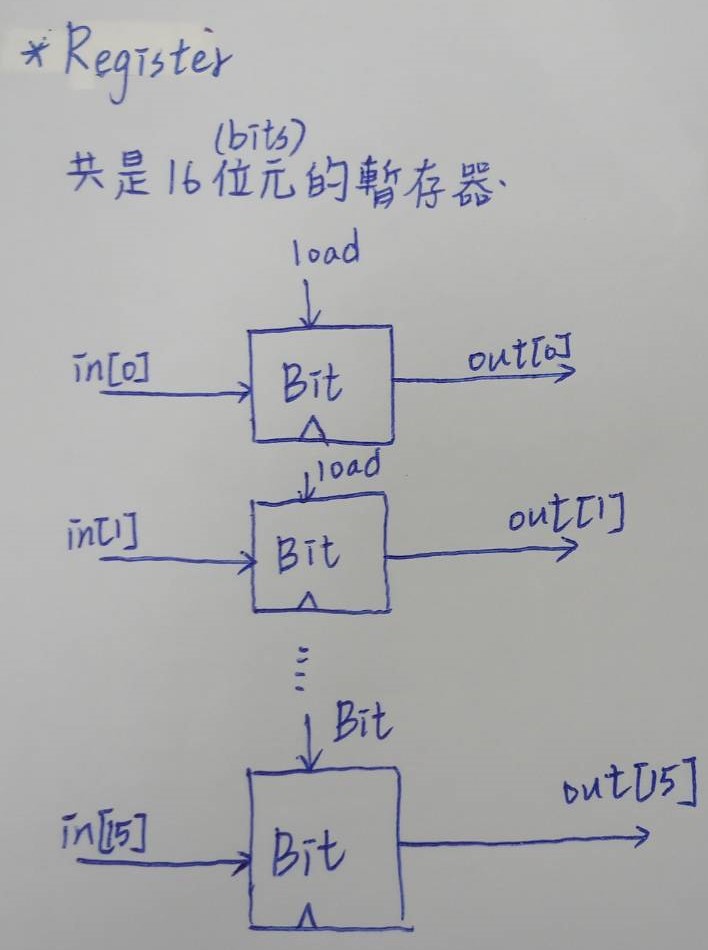 * Register
(bits)
共是16位元的暫存器.
load
in[0]
Bit
out[0]
load
in[1]
Bit
out[1]
Bit
in[15]
Bit
out[15]